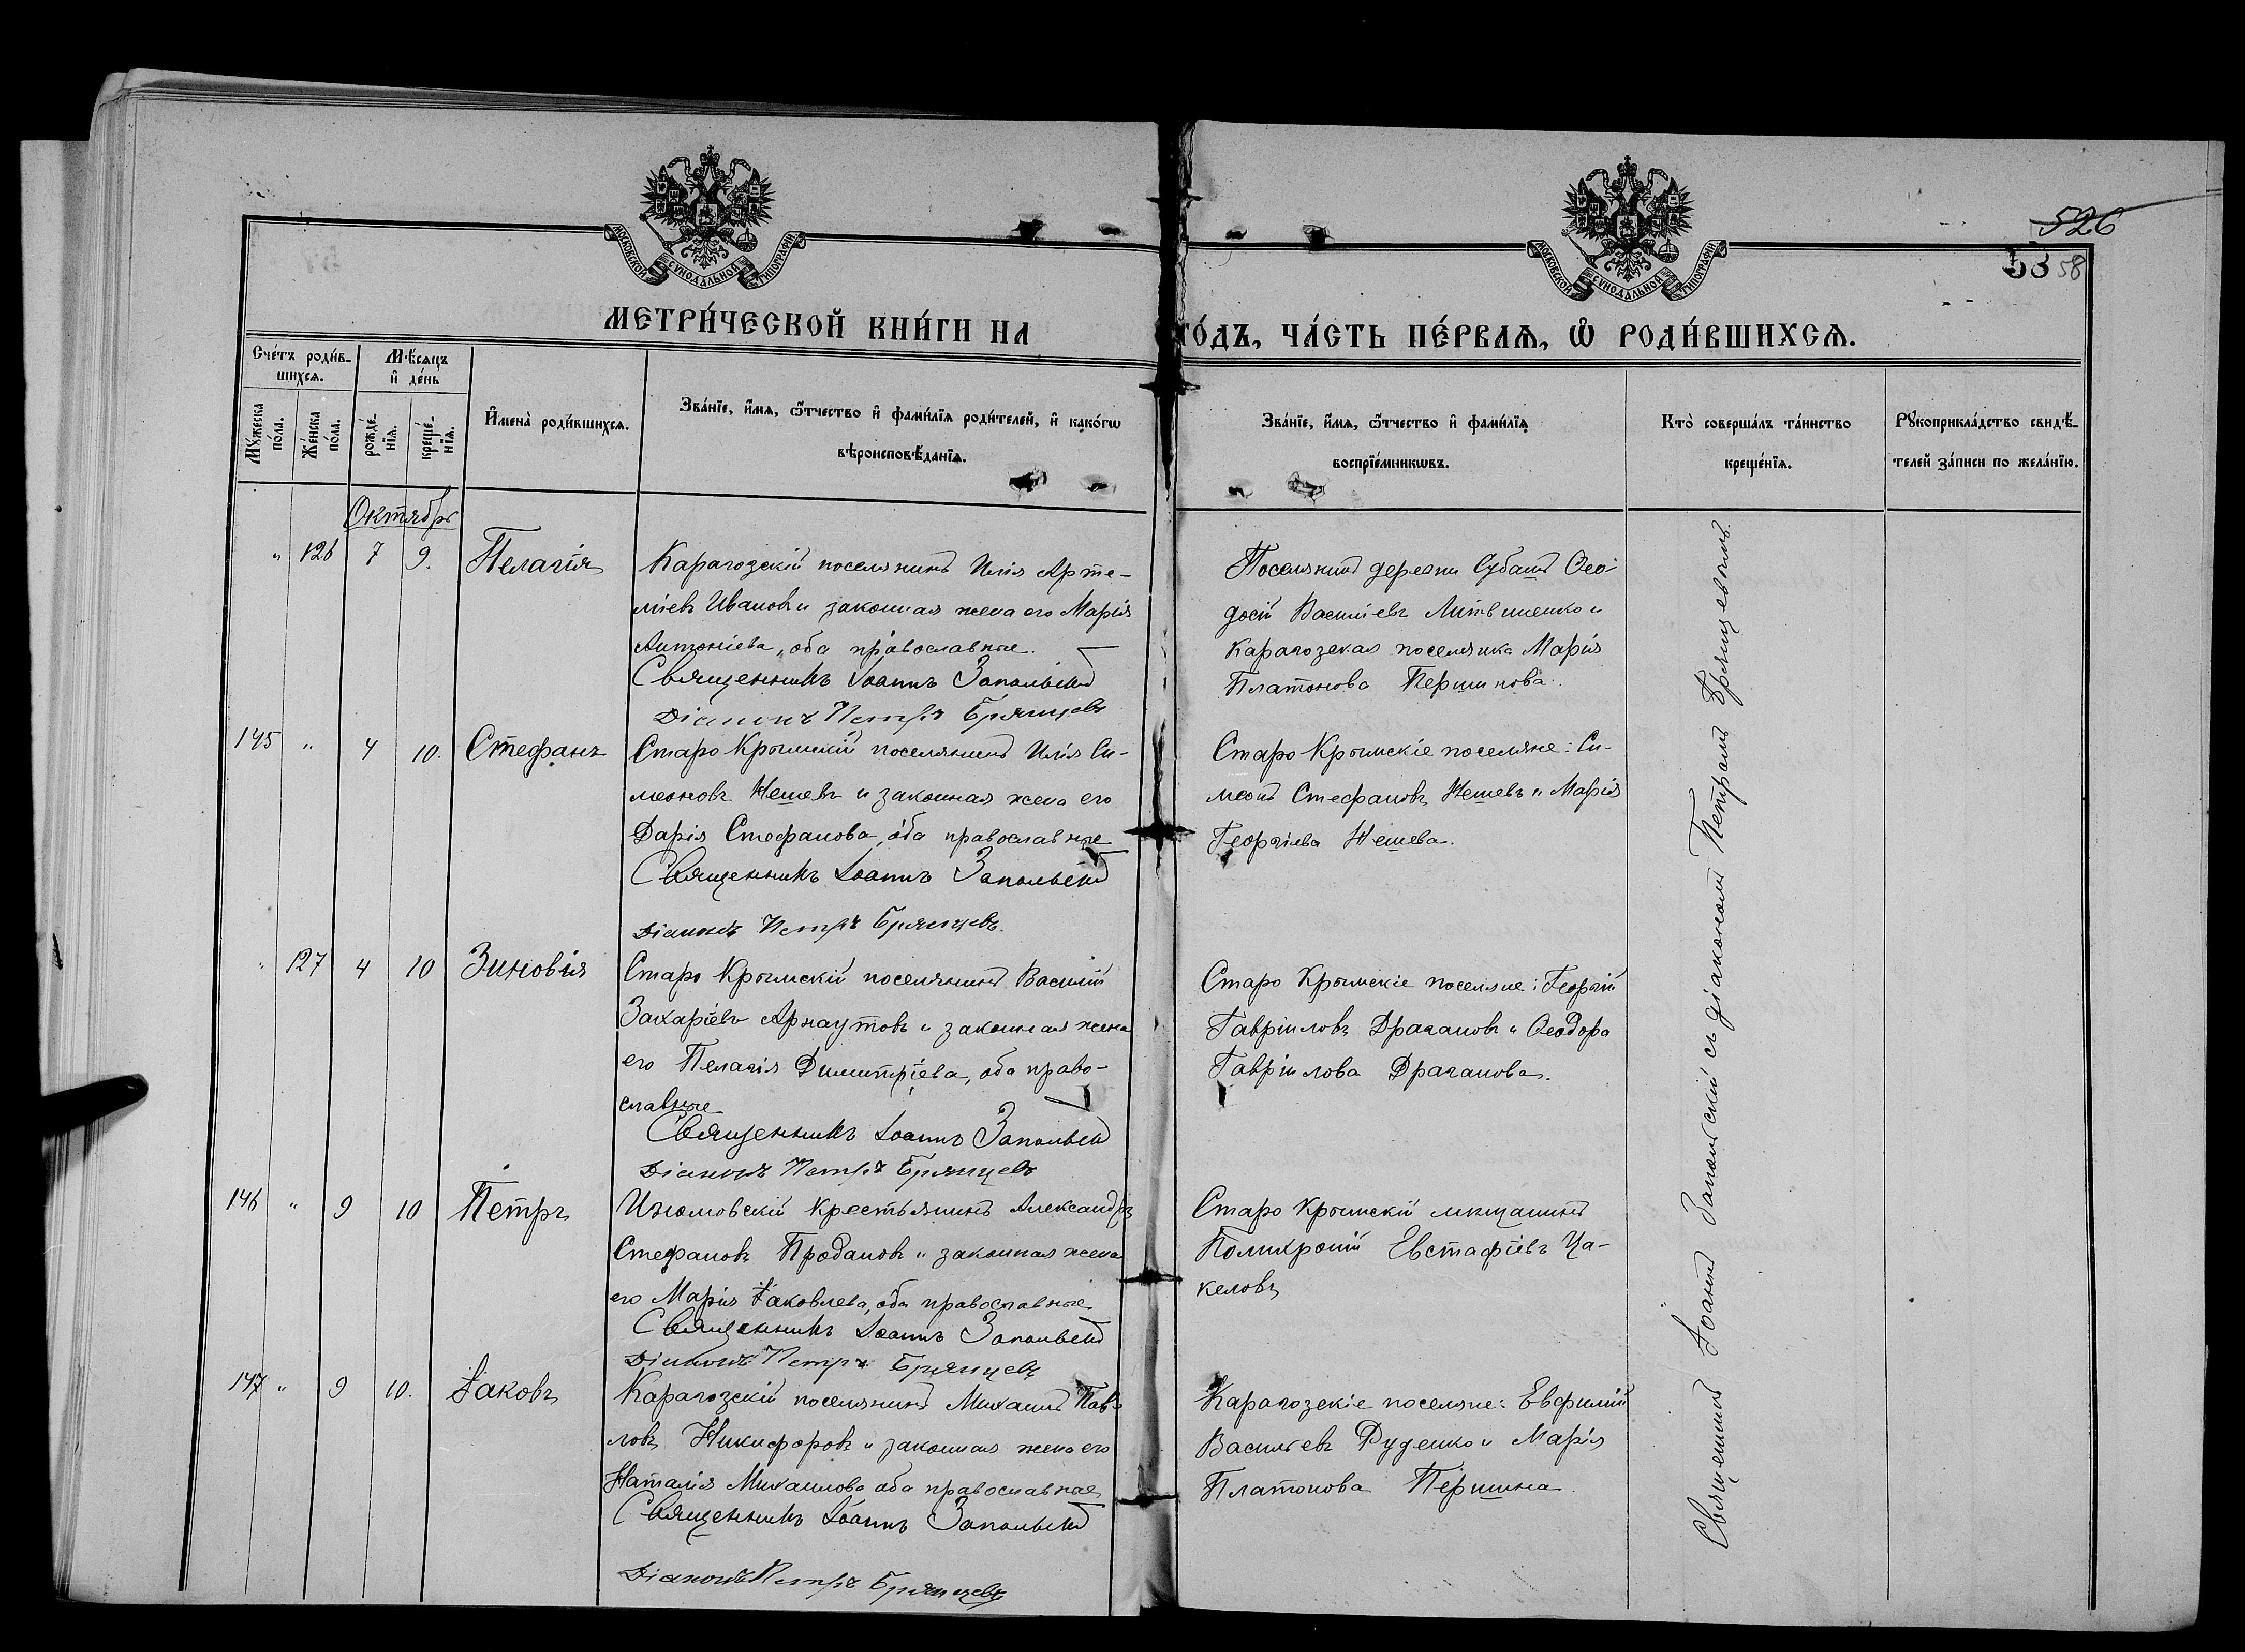 526
58 58
МОСКОВСКОЙ СУНОДАЛЬНОЙ ТИПОГРАФІИ
МОСКОВСКОЙ СУНОДАЛЬНОЙ ТИПОГРАФІИ
МЕТРИ́ЧЕСКОЙ КНИ́ГИ НА
ГО́ДЪ, ЧА́СТЬ ПЕ́РВАѦ, Ѡ РОДИ́ВШИХСѦ.
Сче́тъ роди́в-
шихсѧ.
Мꙋ́жеска
по́ла.
Же́нска
по́ла.
Мѣ́сѧцъ
и҆ де́нь
рожде́-
нїѧ.
креще́-
нїѧ.
И҆мена̀ роди́вшихсѧ.
Зва́нїе, и҆́мѧ, ѻ҆́тчество и҆ фами́лїѧ роди́телей, и҆ како́гѡ
вѣроисповѣ́данїѧ.
Зва́нїе, и҆́мѧ, ѻ҆́тчество и҆ фами́лїѧ
воспрїе́мникѡвъ.
Кто̀ соверша́лъ та́инство
креще́нїѧ.
Рꙋкоприкла́дство свидѣ́-
телей за́писи по жела́нїю.
Октябрь
" 126 7 9. Пелагія
Карагозскій поселянинъ Илія Арте-
міевъ Ивановъ и законная жена его Марія
Антоніева, оба православные.
Священникъ Іоаннъ Запольскій
Діаконъ Петръ Брянцевъ
Поселянинъ деревни Субашъ Ѳео-
досій Васильевъ Литвиненко и
Карагозская поселянка Марія
Платонова Першинова.
145 " 4 10. Стефанъ
Старо Крымскій поселянинъ Илія Си-
меоновъ Нешевъ и законная жена его
Дарія Стефанова, оба православные
Священникъ Іоаннъ Запольскій
Діаконъ Петръ Брянцевъ.
Старо Крымскіе поселяне: Си-
меонъ Стефановъ Нешевъ и Марія
Георгіева Нешева.
" 127 4 10 Зиновія
Старо Крымскій поселянинъ Василій
Захаріевъ Арнаутовъ и законная жена
его Пелагія Димитріева, оба право-
славные
Священникъ Іоаннъ Запольскій
Діаконъ Петръ Брянцевъ
Старо Крымскіе поселяне: Георгій
Гавріиловъ Драгановъ и Ѳеодора
Гавріилова Драганова.
146 " 9 10 Петръ
Изюмовскій крестьянинъ Александръ
Стефановъ Продановъ и законная жена
его Марія Іаковлева, оба православные
Священникъ Іоаннъ Запольскій
Діаконъ Петръ Брянцевъ
Старо Крымскій мещанинъ
Полихроній Евстафіевъ Ца-
келовъ
147 " 9 10. Іаковъ
Карагозскій поселянинъ Михаилъ Пав-
ловъ Никифоровъ и законная жена его
Наталія Михаилова оба православные
Священникъ Іоаннъ Запольскій
Діаконъ Петръ Брянцевъ
Карагозскіе поселяне: Евфимій
Васильевъ Руденко и Марія
Платонова Першина
Священникъ Іоаннъ Запольскій съ діакономъ Петромъ Брянцевымъ.